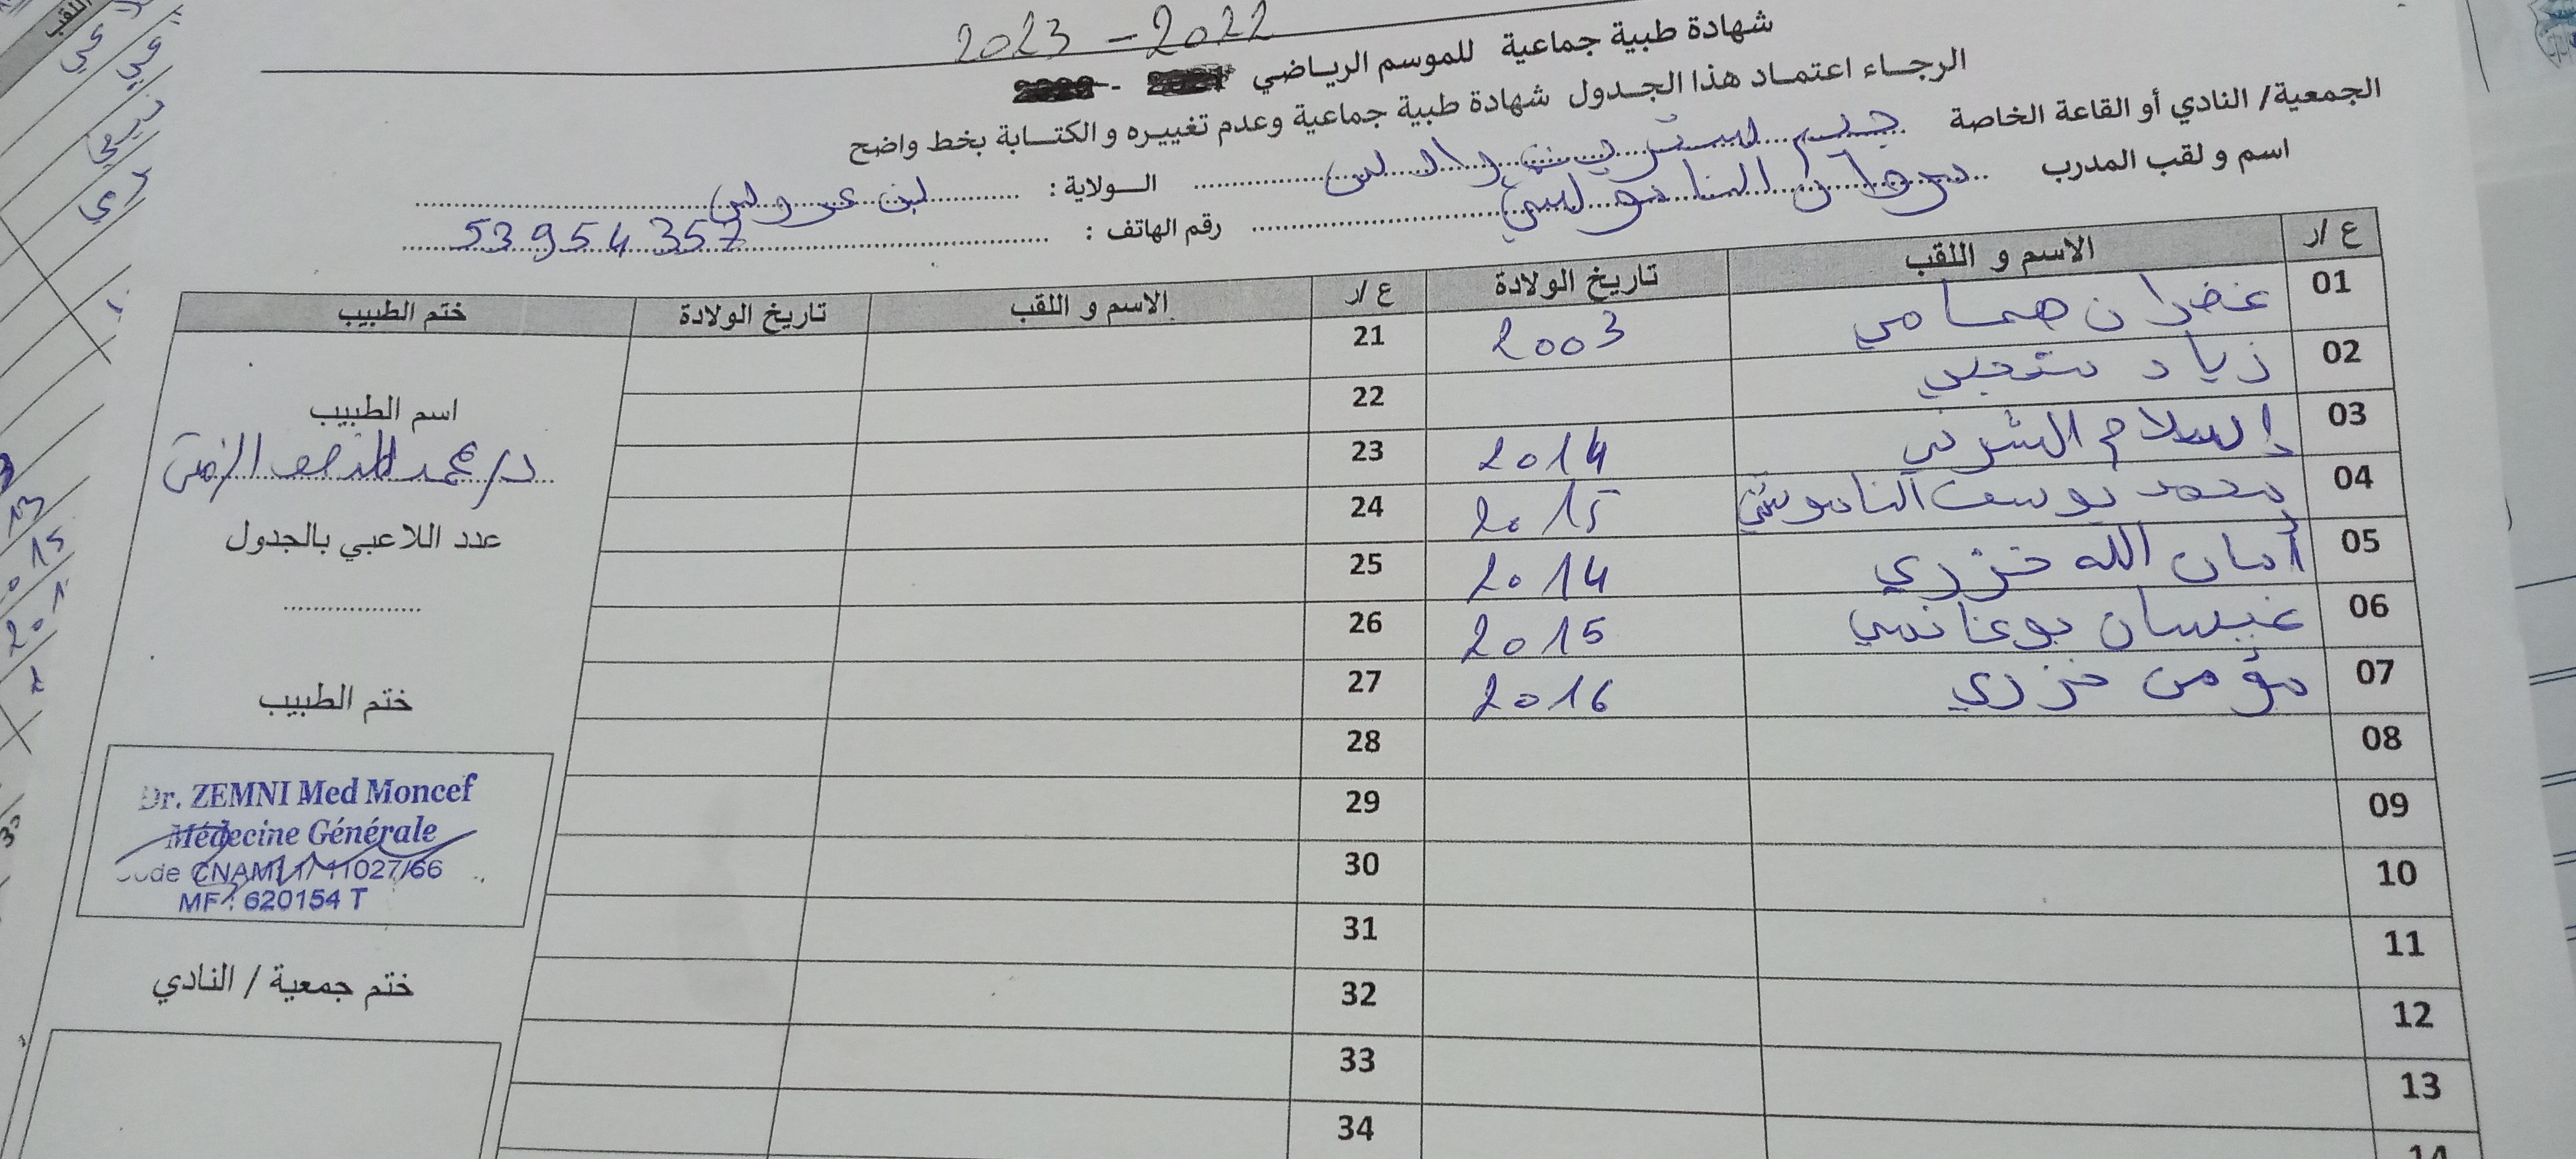 2023 - 2022
شهادة طبية جماعية للموسم الرياضي
الرجاء اعتماد هذا الجدول شهادة طبية جماعية وعدم تغييره و الكتابة بخط واضح
الجمعية/ النادي أو القاعة الخاصة جيم ستريت
الولاية: بن عروس
اسم و لقب المدرب برهان
رقم الهاتف: 53954357
ع /ر الاسم و اللقب تاريخ الولادة ع /ر الاسم و اللقب تاريخ الولادة ختم الطبيب
01 غفران همامي 2003 21
02 زياد 22
03 إسلام الشرفي 2014 23
04 محمد يوسف 2015 24
05 أمان الله خزري 2014 25
06 غيسان بوغانمي 2015 26
07 مؤمن خزري 2016 27
08 28
09 29
10 30
11 31
12 32
13 33
14 34
اسم الطبيب
د/ محمد المنصف الزمني
عدد اللاعبي بالجدول
ختم الطبيب
Dr. ZEMNI Med Moncef
Médecine Générale
Code CNAM 1/11027/66
MF: 620154 T
ختم جمعية / النادي